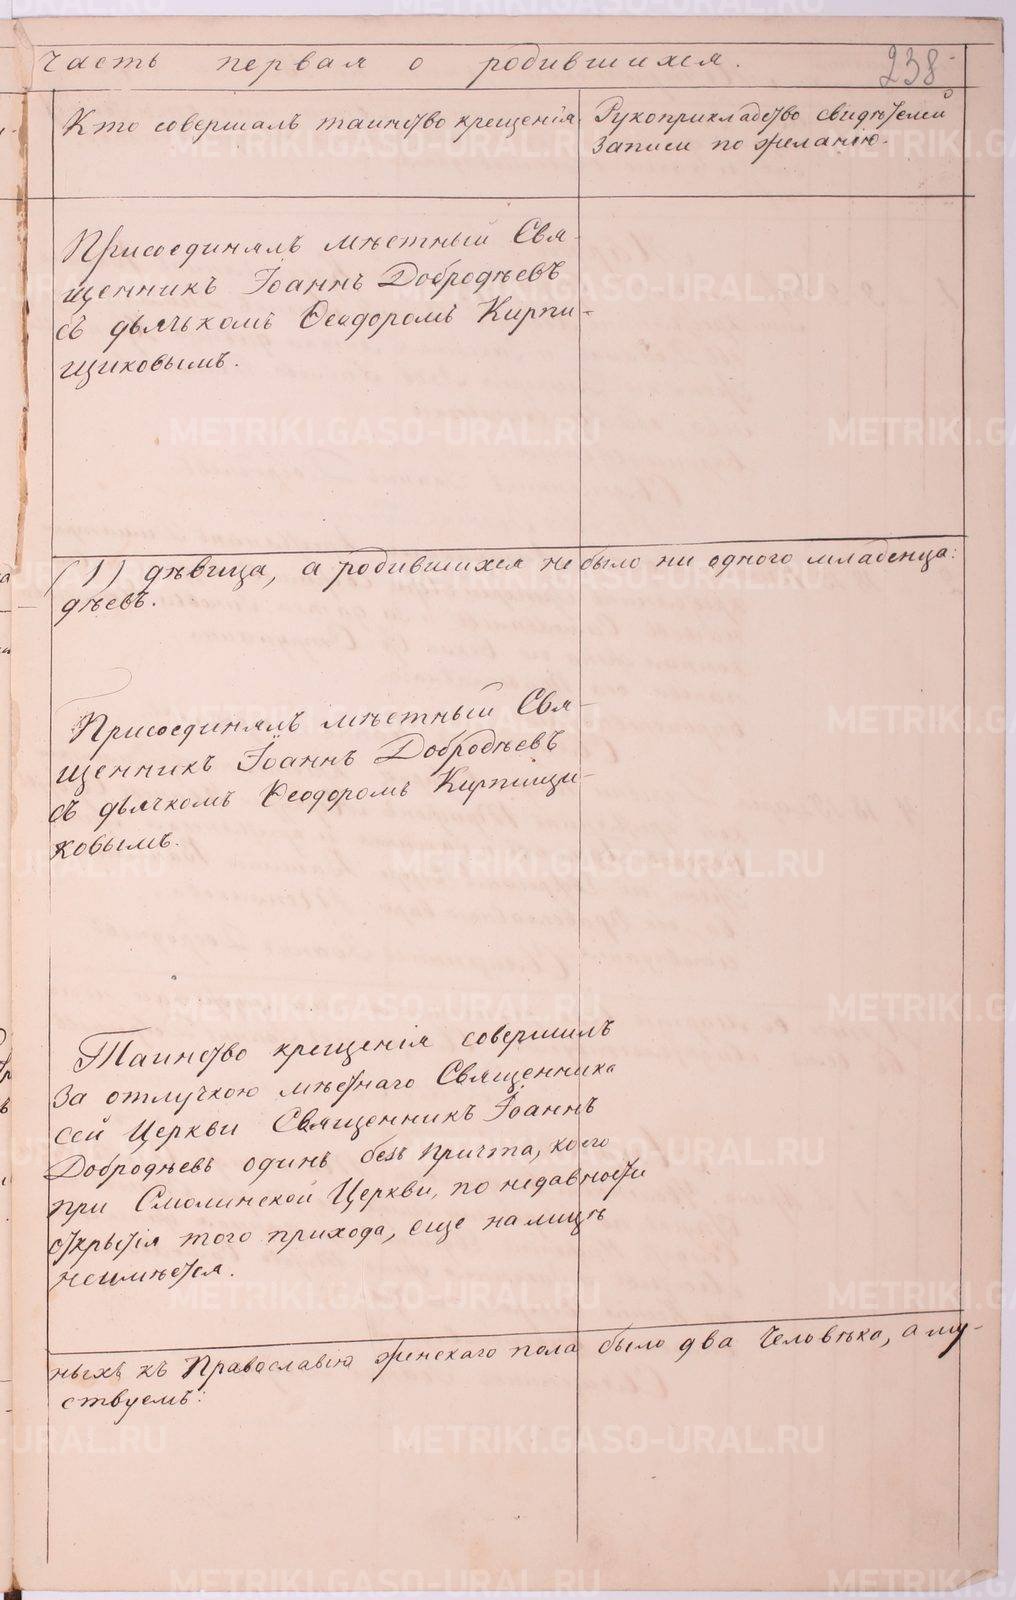 Часть первая о родившихся.
238
Кто совершалъ таинство крещенія.
Рукоприкладство свидѣтелей
записи по желанію.
Присоединялъ мѣстный Свя-
щенникъ Іоаннъ Добродѣевъ
съ дьячькомъ Ѳеодоромъ Кирпи-
щиковымъ.
(1) дѣвица, а родившихся небыло ни одного младенца:
дѣевъ.
Присоединялъ мѣстный Свя-
щенникъ Іоаннъ Добродѣевъ
съ дьячкомъ Ѳеодоромъ Кирпищи-
ковымъ.
Таинство крещенія совершилъ
за отлучкою мѣстнаго Священника
сей Церкви Священникъ Іоаннъ
Добродѣевъ одинъ безъ причта, коего
при Смолинской Церкви, по недавности
открытія того прихода, еще налицѣ
неимѣется.
ныхъ къ Православію женскаго пола было два человѣка, а му-
ствуемъ:
METRIKI.GASO-URAL.RU